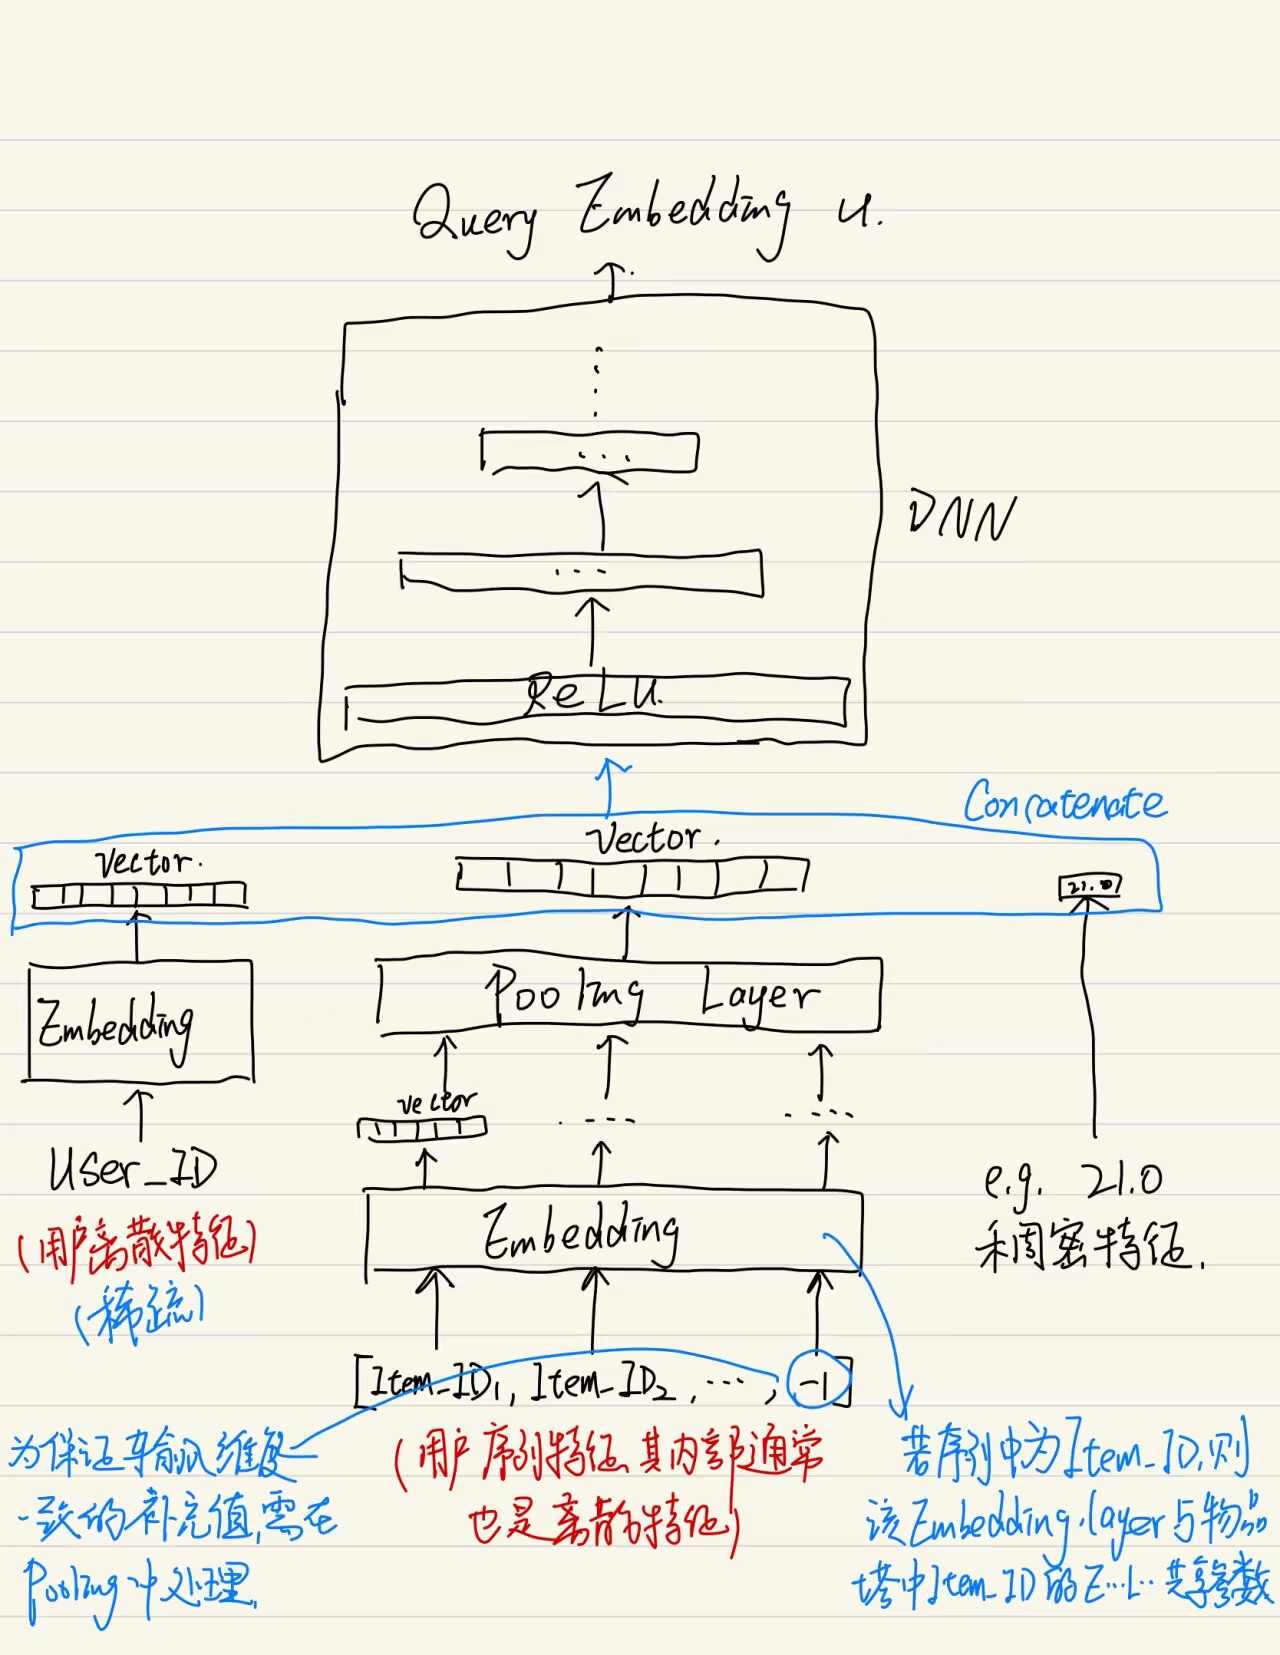 Query Embedding u.
...
...
DNN
ReLU.
Concatenate
Vector.
Vector.
21.0
Pooling Layer
Embedding
vector
User_ID
e.g. 21.0
(用户离散特征)
Embedding
稠密特征.
(稀疏)
[Item_ID1, Item_ID2, ..., -1]
为保证输入维度
一致的补充值,需在
Pooling中处理.
(用户序列特征,其内部通常
也是离散特征)
若序列中为Item_ID,则
该Embedding layer与物品
塔中Item_ID的E..L..共享参数